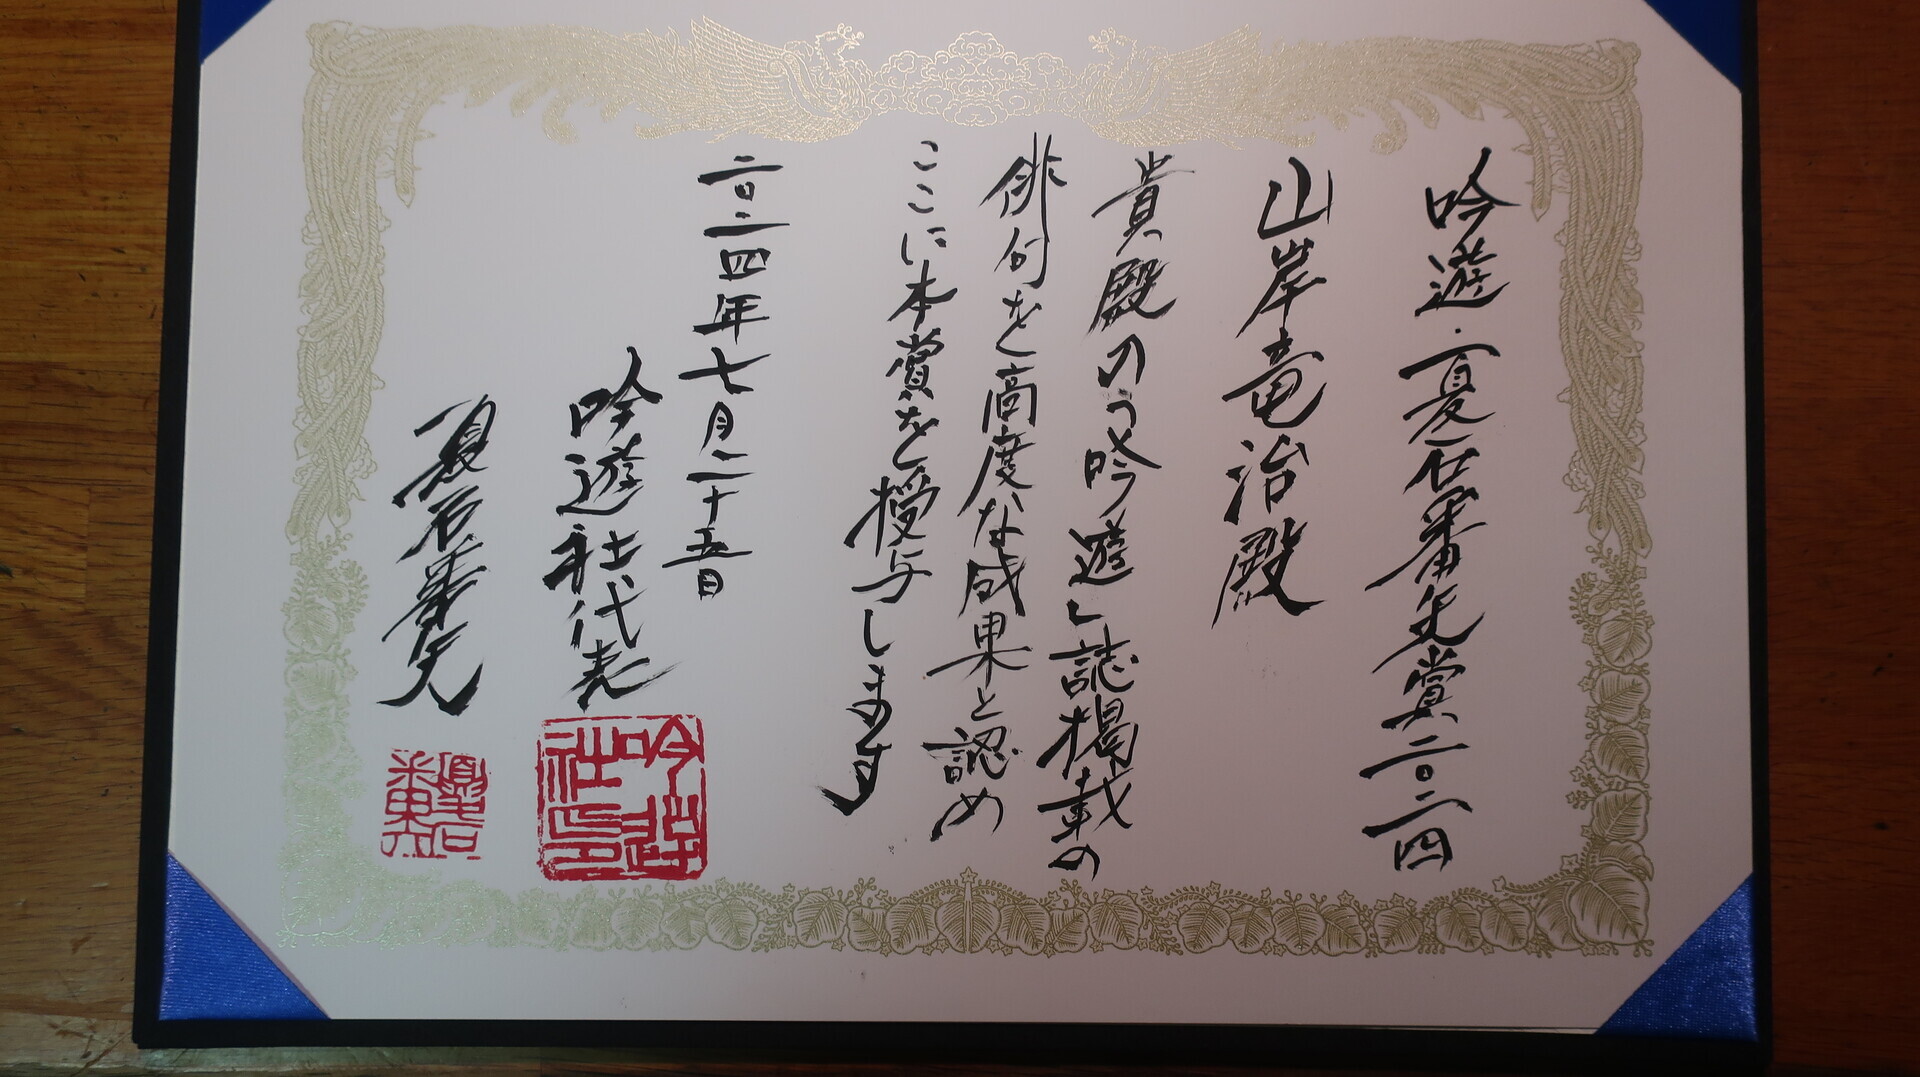 吟遊・夏石番矢賞二〇二四
山岸竜治殿
貴殿の「吟遊」誌掲載の
俳句を高度な成果と認め
ここに本賞を授与します
二〇二四年七月二十五日
吟遊社代表
夏石番矢
吟遊
社印